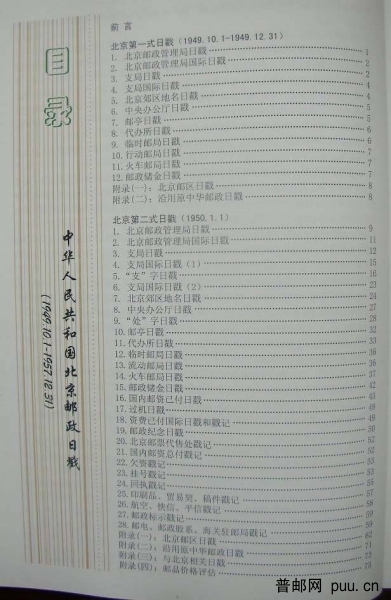 目录
中华人民共和国北京邮政日戳
(1949.10.1-1957.12.31)
前言
北京第一式日戳(1949.10.1-1949.12.31)
1. 北京邮政管理局日戳 1
2. 北京邮政管理局国际日戳 2
3. 支局日戳 2
4. 支局国际日戳
5. 北京郊区地名日戳
6. 中央办公厅日戳 5
7. 邮亭日戳
8. 代办所日戳 6
9. 临时邮局日戳 6
10. 行动邮局日戳
11. 火车邮局日戳 7
12. 邮政储金日戳 7
附录(一):北京邮区日戳 8
附录(二):沿用原中华邮政日戳 8
北京第二式日戳(1950.1.1)
1. 北京邮政管理局日戳 9
2. 北京邮政管理局国际日戳 11
3. 支局日戳 12
4. 支局国际日戳(1) 15
5. "支"字日戳 16
6. 支局国际日戳(2) 23
7. 北京郊区地名日戳 24
8. 中央办公厅日戳 27
9. "处"字日戳 28
10. 邮亭日戳
11. 代办所日戳 33
12. 临时邮局日戳
13. 流动邮局日戳
14. 火车邮局日戳 37
15. 邮政储金日戳 42
16. 国内邮资已付日戳
17. 过机日戳
18. 资费已付国际日戳和戳记
19. 邮政纪念日戳
20. 北京邮票代售处戳记
21. 国内邮资总付戳记
22. 欠资戳记
23. 挂号戳记
24. 回执戳记
25. 印刷品、贸易契、稿件戳记
26. 航空、快信、平信戳记
27. 邮政标示戳记
28. 邮电、邮政股系、海关驻邮局戳记
附录(一):北京邮区日戳
附录(二):沿用原中华邮政日戳
附录(三):与北京相关日戳
附录(四):邮品价格评估
普邮网 puu.cn